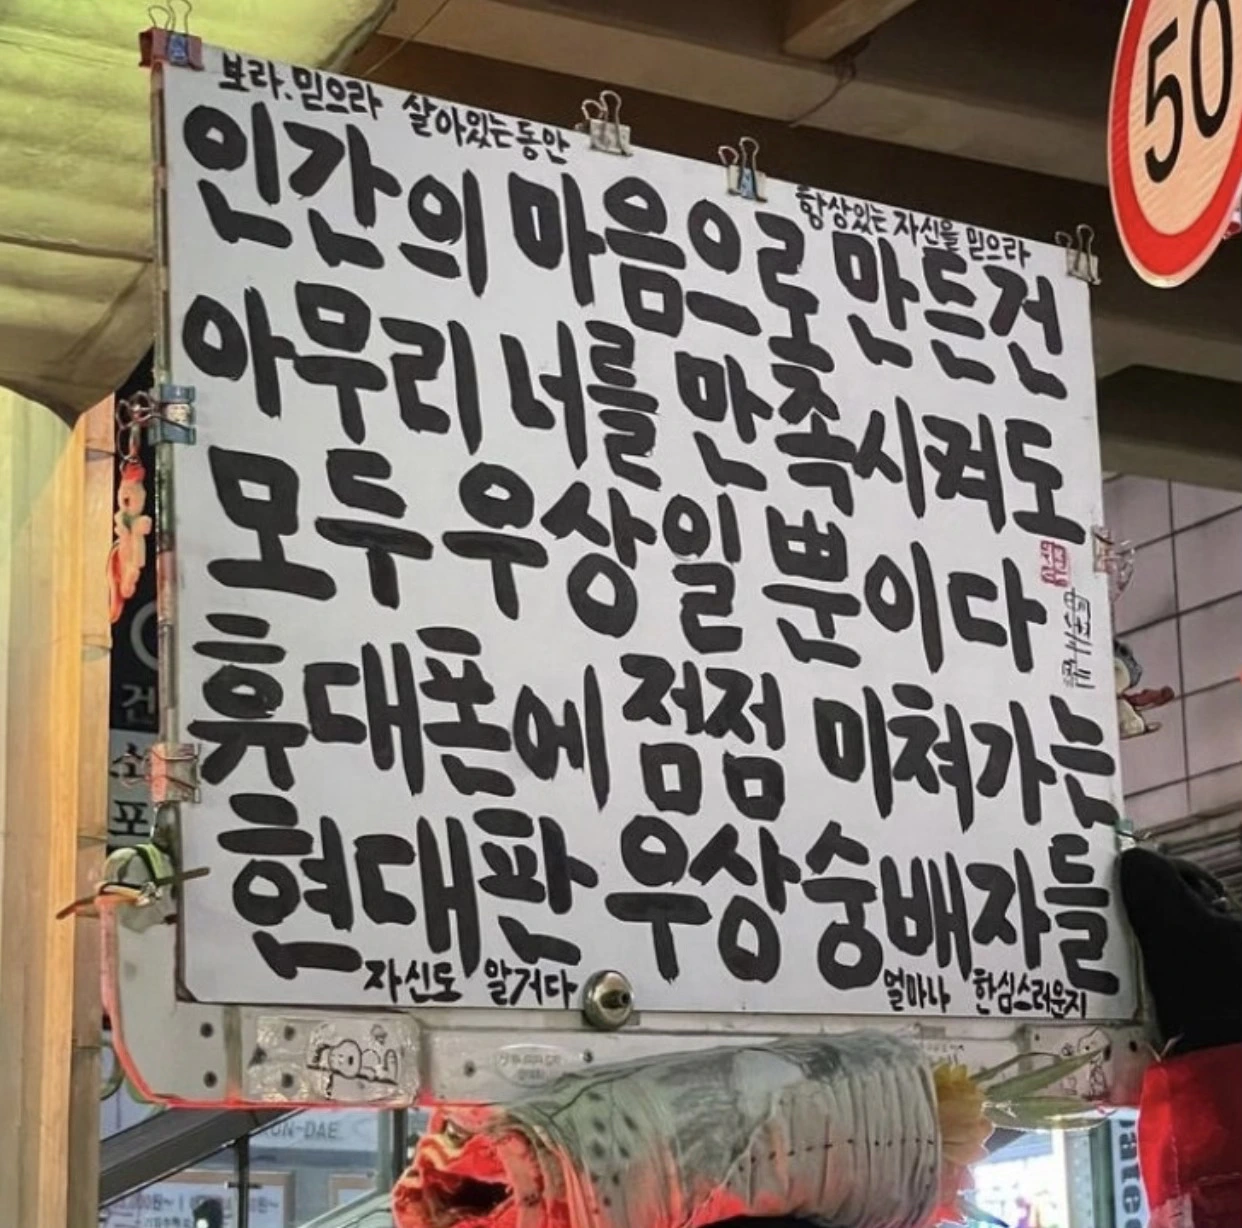 보라.믿으라 살아있는동안
항상있는 자신을 믿으라
인간의 마음으로 만든건
아무리 너를 만족시켜도
모두 우상일 뿐이다
휴대폰에 점점 미쳐가는
현대판 우상숭배자들
자신도 알거다
얼마나 한심스러운지
50
건
소
포
UN-DAE